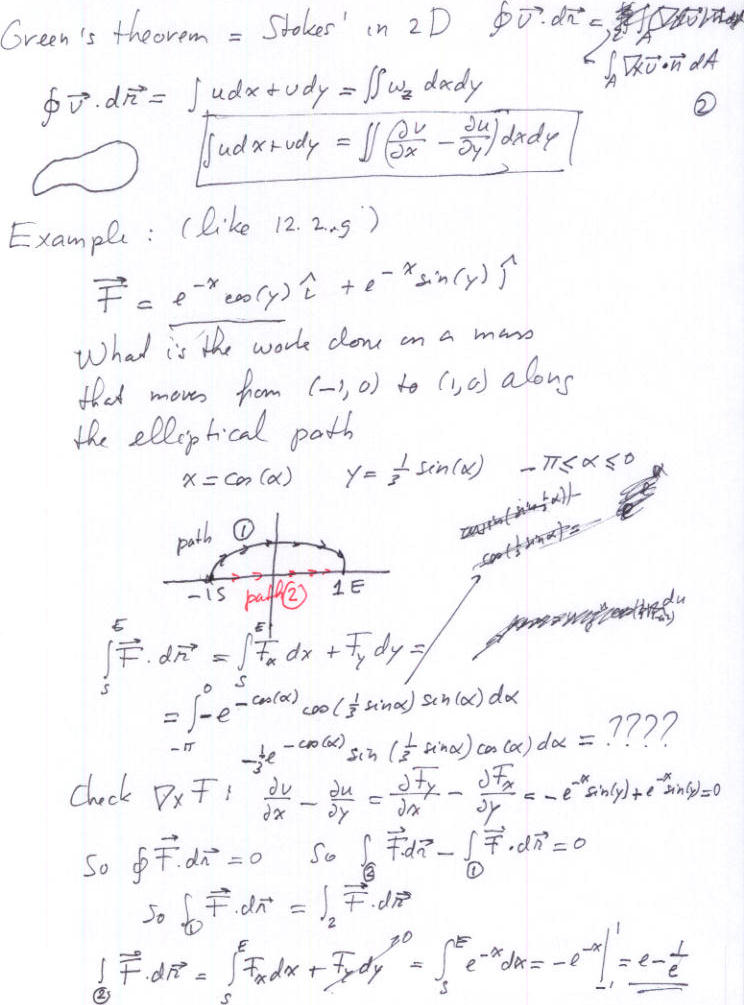 Green's theorem = Stokes' in 2D ∮ v⃗ · dr⃗ =
∫_A ∇×v⃗ • n⃗ dA
②
∮ v⃗ · dr⃗ = ∫ udx + vdy = ∬ ω_z dxdy
∫ udx + vdy = ∬ (∂v/∂x − ∂u/∂y) dxdy
Example : (like 12.2.9)
F⃗ = e^{-x} cos(y) î + e^{-x} sin(y) ĵ
What is the work done on a mass
that moves from (-1, 0) to (1, 0) along
the elliptical path
x = cos(α) y = 1/3 sin(α) −π ≤ α ≤ 0
path ①
−1 S path ② 1 E
∫_S^E F⃗ · dr⃗ = ∫_S^E F_x dx + F_y dy =
= ∫_{-π}^0 −e^{-cos(α)} cos(1/3 sinα) sin(α) dα
−1/3 e^{-cos(α)} sin(1/3 sinα) cos(α) dα = ????
Check ∇×F : ∂v/∂x − ∂u/∂y = ∂F_y/∂x − ∂F_x/∂y = −e^{-x} sin(y) + e^{-x} sin(y) = 0
So ∮ F⃗ · dr⃗ = 0 So ∫_② F⃗ dr⃗ − ∫_① F⃗ · dr⃗ = 0
So ∫_① F⃗ · dr⃗ = ∫_2 F⃗ · dr⃗
∫_② F⃗ · dr⃗ = ∫_S^E F_x dx + F_y dy 0 = ∫_S^E e^{-x} dx = −e^{-x} |_{-1}^1 = e − 1/e